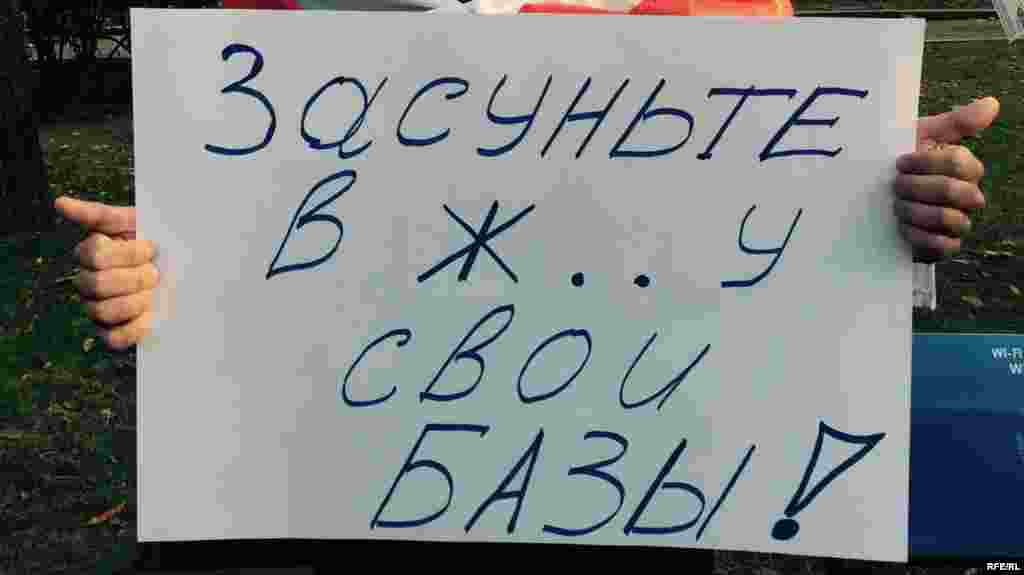 Засуньте
в ж..у
свои
БАЗЫ!
WI-FI
W
RFE/RL